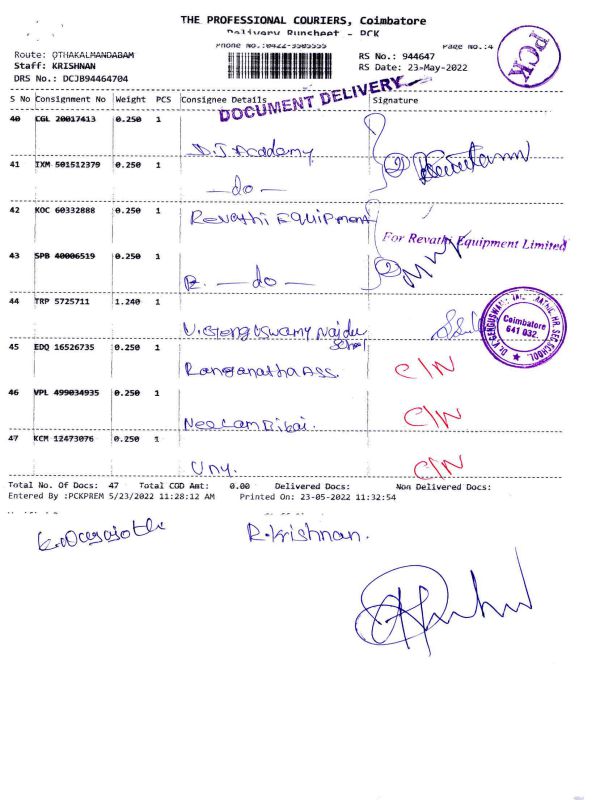 THE PROFESSIONAL COURIERS, Coimbatore
Delivery Runsheet - PCK
Phone No.:0422-3505555
Page No.:4
PCK
Route: OTHAKALMANDABAM
Staff: KRISHNAN
DRS No.: DCJB94464704
RS No.: 944647
RS Date: 23-May-2022
DOCUMENT DELIVERY
S No Consignment No Weight PCS Consignee Details Signature
40 CGL 20017413 0.250 1
D.J Academy
41 IXM 501512379 0.250 1
-do-
42 KOC 60332888 0.250 1
Revathi Equipment
For Revathi Equipment Limited
43 SPB 40006519 0.250 1
R. -do-
44 TRP 5725711 1.240 1
Coimbatore
641 032
V.Gengusway Naidu
School
45 EDQ 16526735 0.250 1
Ranganatha Ass. C/N
46 VPL 499034935 0.250 1
C/N
47 KCM 12473076 0.250 1
Uny. C/N
Total No. Of Docs: 47 Total COD Amt: 0.00 Delivered Docs: Non Delivered Docs:
Entered By :PCKPREM 5/23/2022 11:28:12 AM Printed On: 23-05-2022 11:32:54
R.Krishnan.